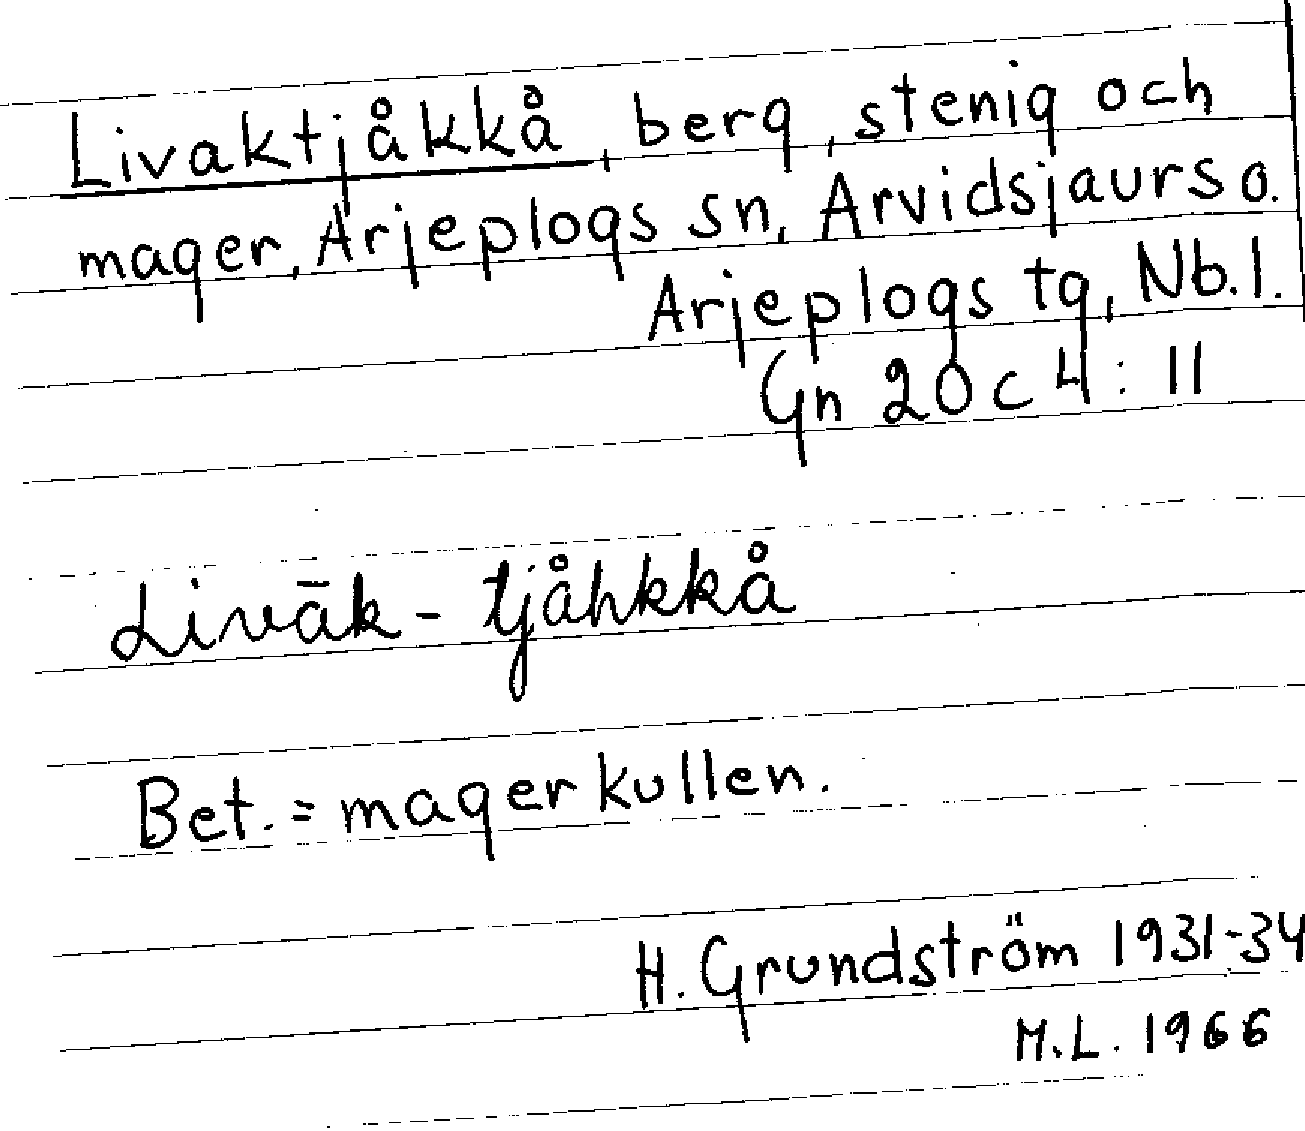 Livaktjåkkå, berg, stenig och
mager, Arjeplogs sn, Arvidsjaurs o.
Arjeplogs tg, Nb.l.
Gn 20 c 4 : 11
Livāk - tjåhkkå
Bet. = magerkullen.
H. Grundström 1931-34
M.L. 1966